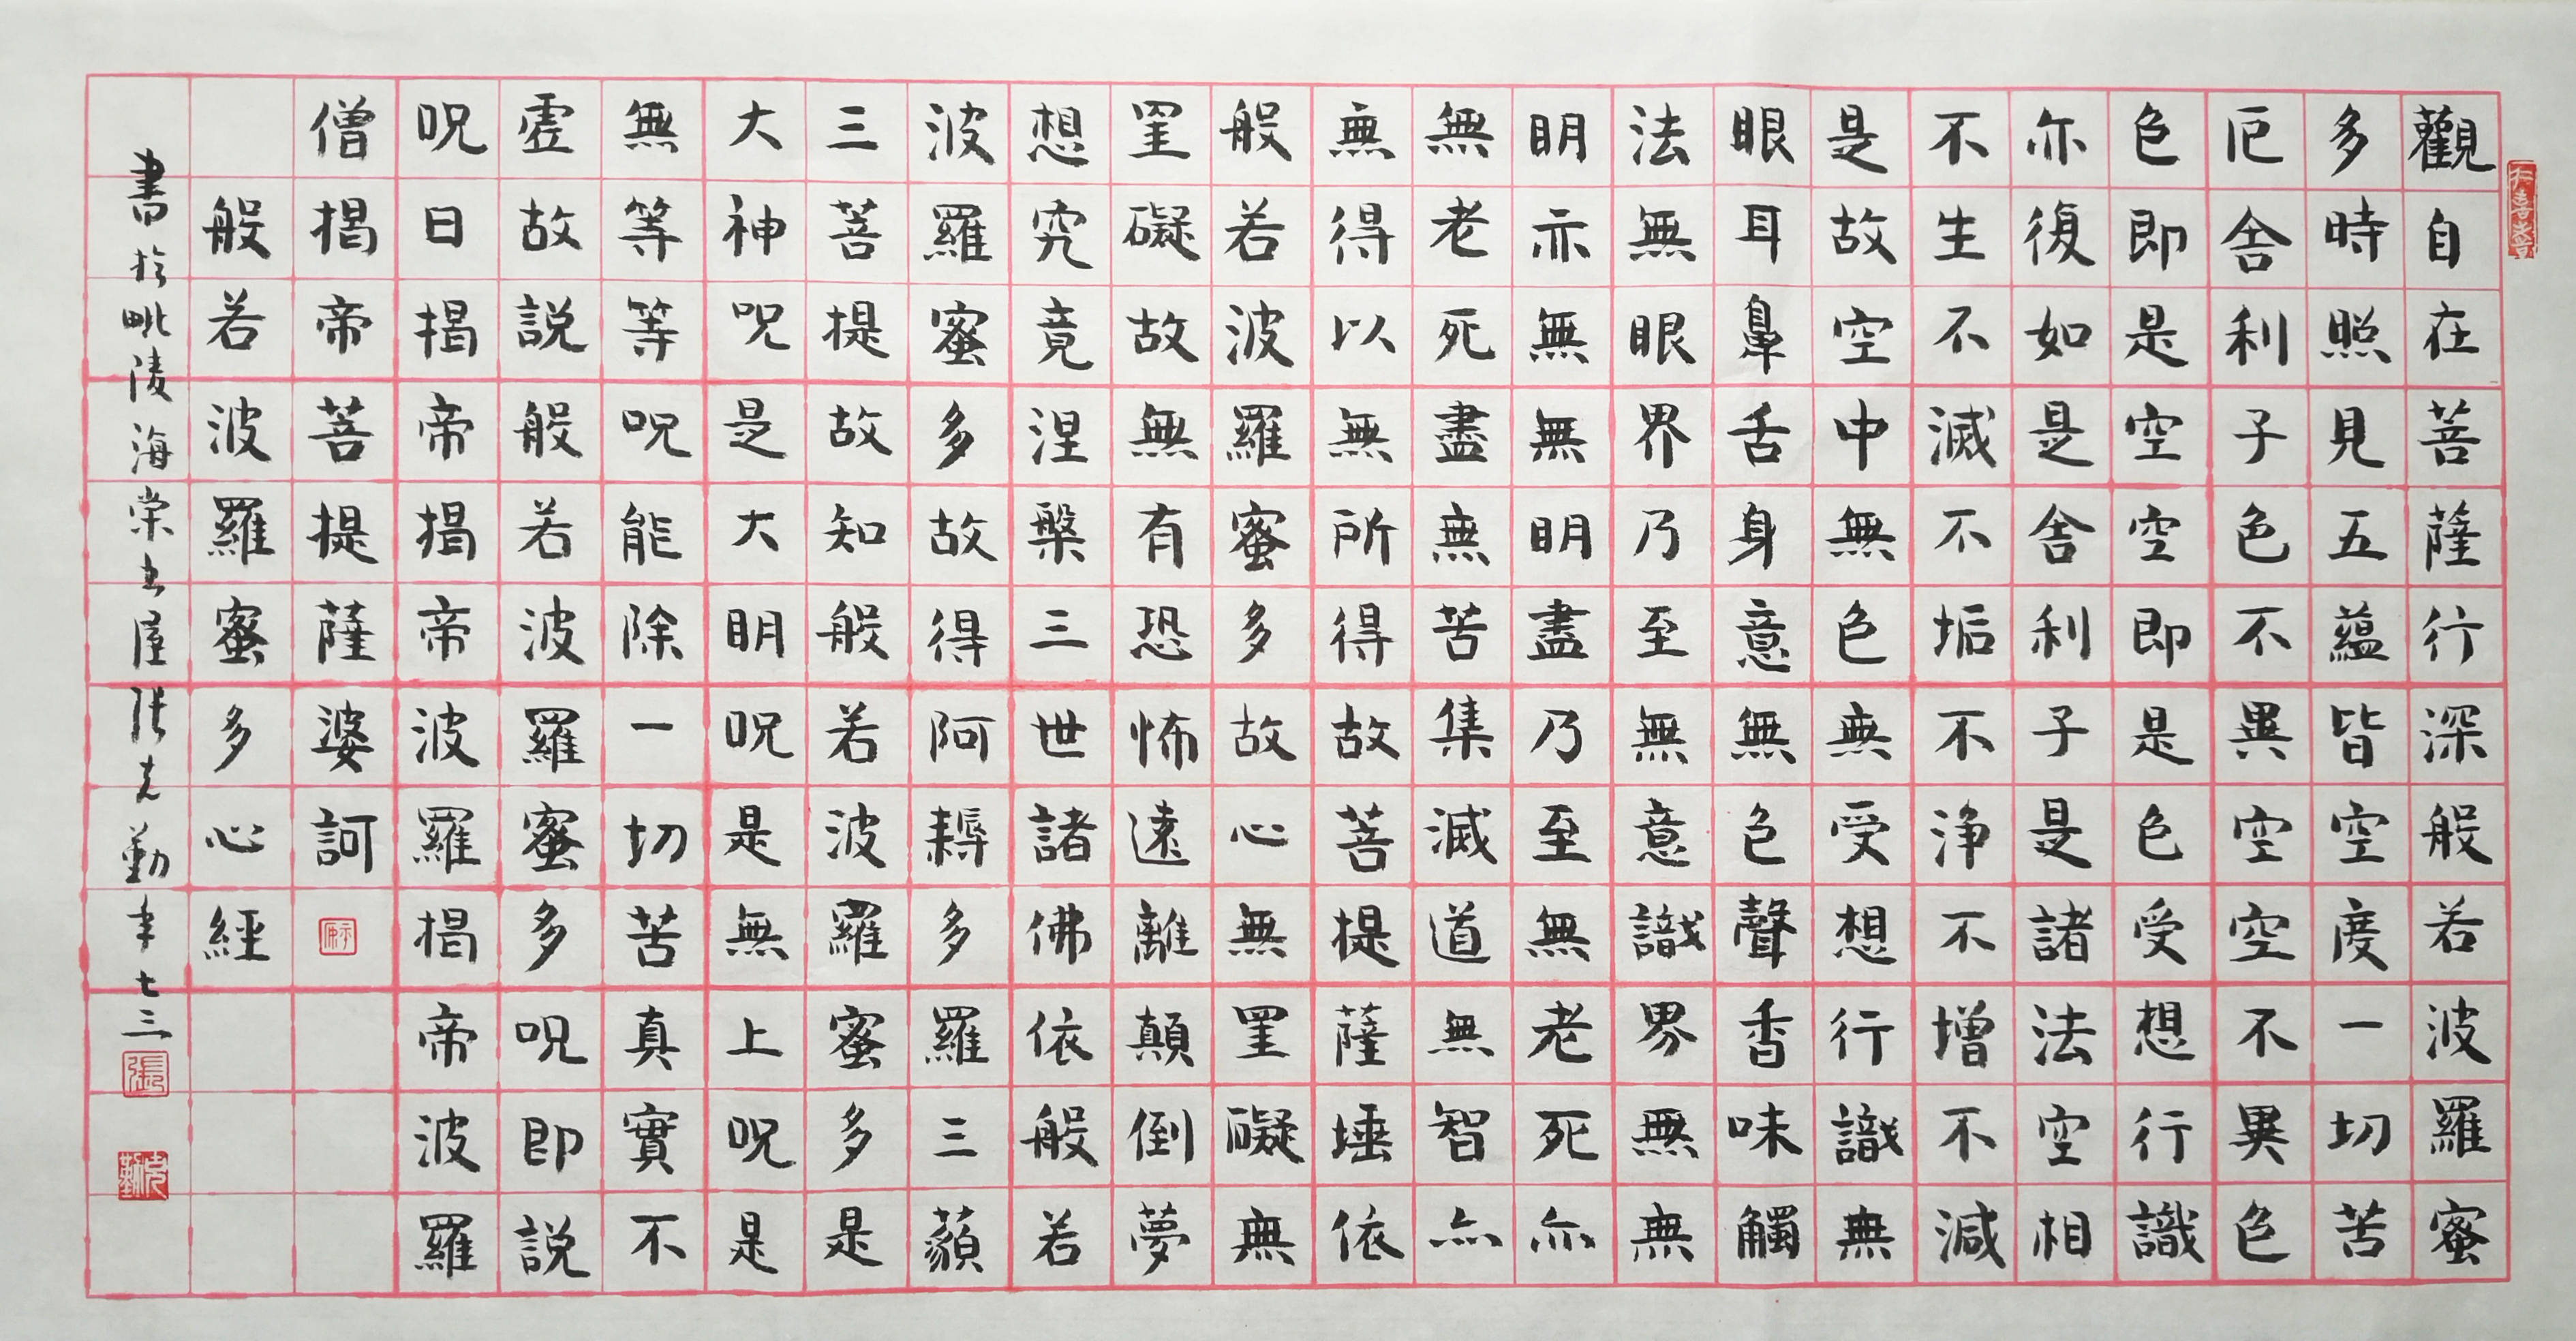 觀自在菩薩行深般若波羅蜜
多時照見五蘊皆空度一切苦
厄舍利子色不異空空不異色
色即是空空即是色受想行識
亦復如是舍利子是諸法空相
不生不滅不垢不淨不增不減
是故空中無色無受想行識無
眼耳鼻舌身意無色聲香味觸
法無眼界乃至無意識界無無
明亦無無明盡乃至無老死亦
無老死盡無苦集滅道無智亦
無得以無所得故菩提薩埵依
般若波羅蜜多故心無罣礙無
罣礙故無有恐怖遠離顛倒夢
想究竟涅槃三世諸佛依般若
波羅蜜多故得阿耨多羅三藐
三菩提故知般若波羅蜜多是
大神咒是大明咒是無上咒是
無等等咒能除一切苦真實不
虛故說般若波羅蜜多咒即說
咒曰揭帝揭帝波羅揭帝波羅
僧揭帝菩提薩婆訶
般若波羅蜜多心經
書於毗陵海棠書屋張克勤年七三
張
克勤